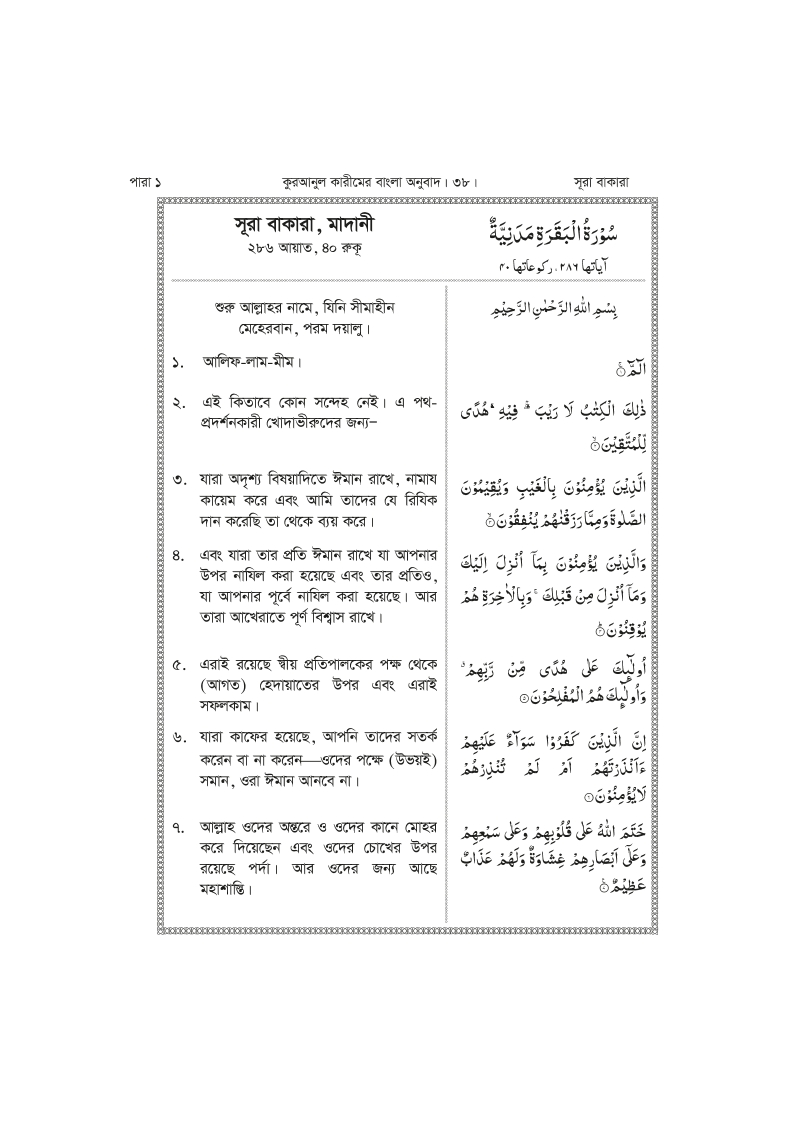 পারা ১ কুরআনুল কারীমের বাংলা অনুবাদ। ৩৮। সূরা বাকারা
সূরা বাকারা, মাদানী
২৮৬ আয়াত, ৪০ রুকূ
শুরু আল্লাহর নামে, যিনি সীমাহীন
মেহেরবান, পরম দয়ালু।
১. আলিফ-লাম-মীম।
২. এই কিতাবে কোন সন্দেহ নেই। এ পথ-
প্রদর্শনকারী খোদাভীরুদের জন্য–
৩. যারা অদৃশ্য বিষয়াদিতে ঈমান রাখে, নামায
কায়েম করে এবং আমি তাদের যে রিযিক
দান করেছি তা থেকে ব্যয় করে।
৪. এবং যারা তার প্রতি ঈমান রাখে যা আপনার
উপর নাযিল করা হয়েছে এবং তার প্রতিও,
যা আপনার পূর্বে নাযিল করা হয়েছে। আর
তারা আখেরাতে পূর্ণ বিশ্বাস রাখে।
৫. এরাই রয়েছে স্বীয় প্রতিপালকের পক্ষ থেকে
(আগত) হেদায়াতের উপর এবং এরাই
সফলকাম।
৬. যারা কাফের হয়েছে, আপনি তাদের সতর্ক
করেন বা না করেন—ওদের পক্ষে (উভয়ই)
সমান, ওরা ঈমান আনবে না।
৭. আল্লাহ ওদের অন্তরে ও ওদের কানে মোহর
করে দিয়েছেন এবং ওদের চোখের উপর
রয়েছে পর্দা। আর ওদের জন্য আছে
মহাশাস্তি।
سُوْرَةُ الْبَقَرَةِ مَدَنِيَّةٌ
آیاتها ٢٨٦، ركوعاتها ٤٠
بِسْمِ اللهِ الرَّحْمٰنِ الرَّحِيْمِ
الٓمّٓ ۝١
ذٰلِكَ الْكِتٰبُ لَا رَيْبَ ۛ فِيْهِ ۛ هُدًى
لِّلْمُتَّقِيْنَ ۝٢
الَّذِيْنَ يُؤْمِنُوْنَ بِالْغَيْبِ وَيُقِيْمُوْنَ
الصَّلٰوةَ وَمِمَّا رَزَقْنٰهُمْ يُنْفِقُوْنَ ۝٣
وَالَّذِيْنَ يُؤْمِنُوْنَ بِمَآ اُنْزِلَ اِلَيْكَ
وَمَآ اُنْزِلَ مِنْ قَبْلِكَ ۚ وَبِالْاٰخِرَةِ هُمْ
يُوْقِنُوْنَ ۝٤
اُولٰٓئِكَ عَلٰى هُدًى مِّنْ رَّبِّهِمْ ۙ
وَاُولٰٓئِكَ هُمُ الْمُفْلِحُوْنَ ۝٥
اِنَّ الَّذِيْنَ كَفَرُوْا سَوَآءٌ عَلَيْهِمْ
ءَاَنْذَرْتَهُمْ اَمْ لَمْ تُنْذِرْهُمْ
لَا يُؤْمِنُوْنَ ۝٦
خَتَمَ اللهُ عَلٰى قُلُوْبِهِمْ وَعَلٰى سَمْعِهِمْ
وَعَلٰٓى اَبْصَارِهِمْ غِشَاوَةٌ وَّلَهُمْ عَذَابٌ
عَظِيْمٌ ۝٧